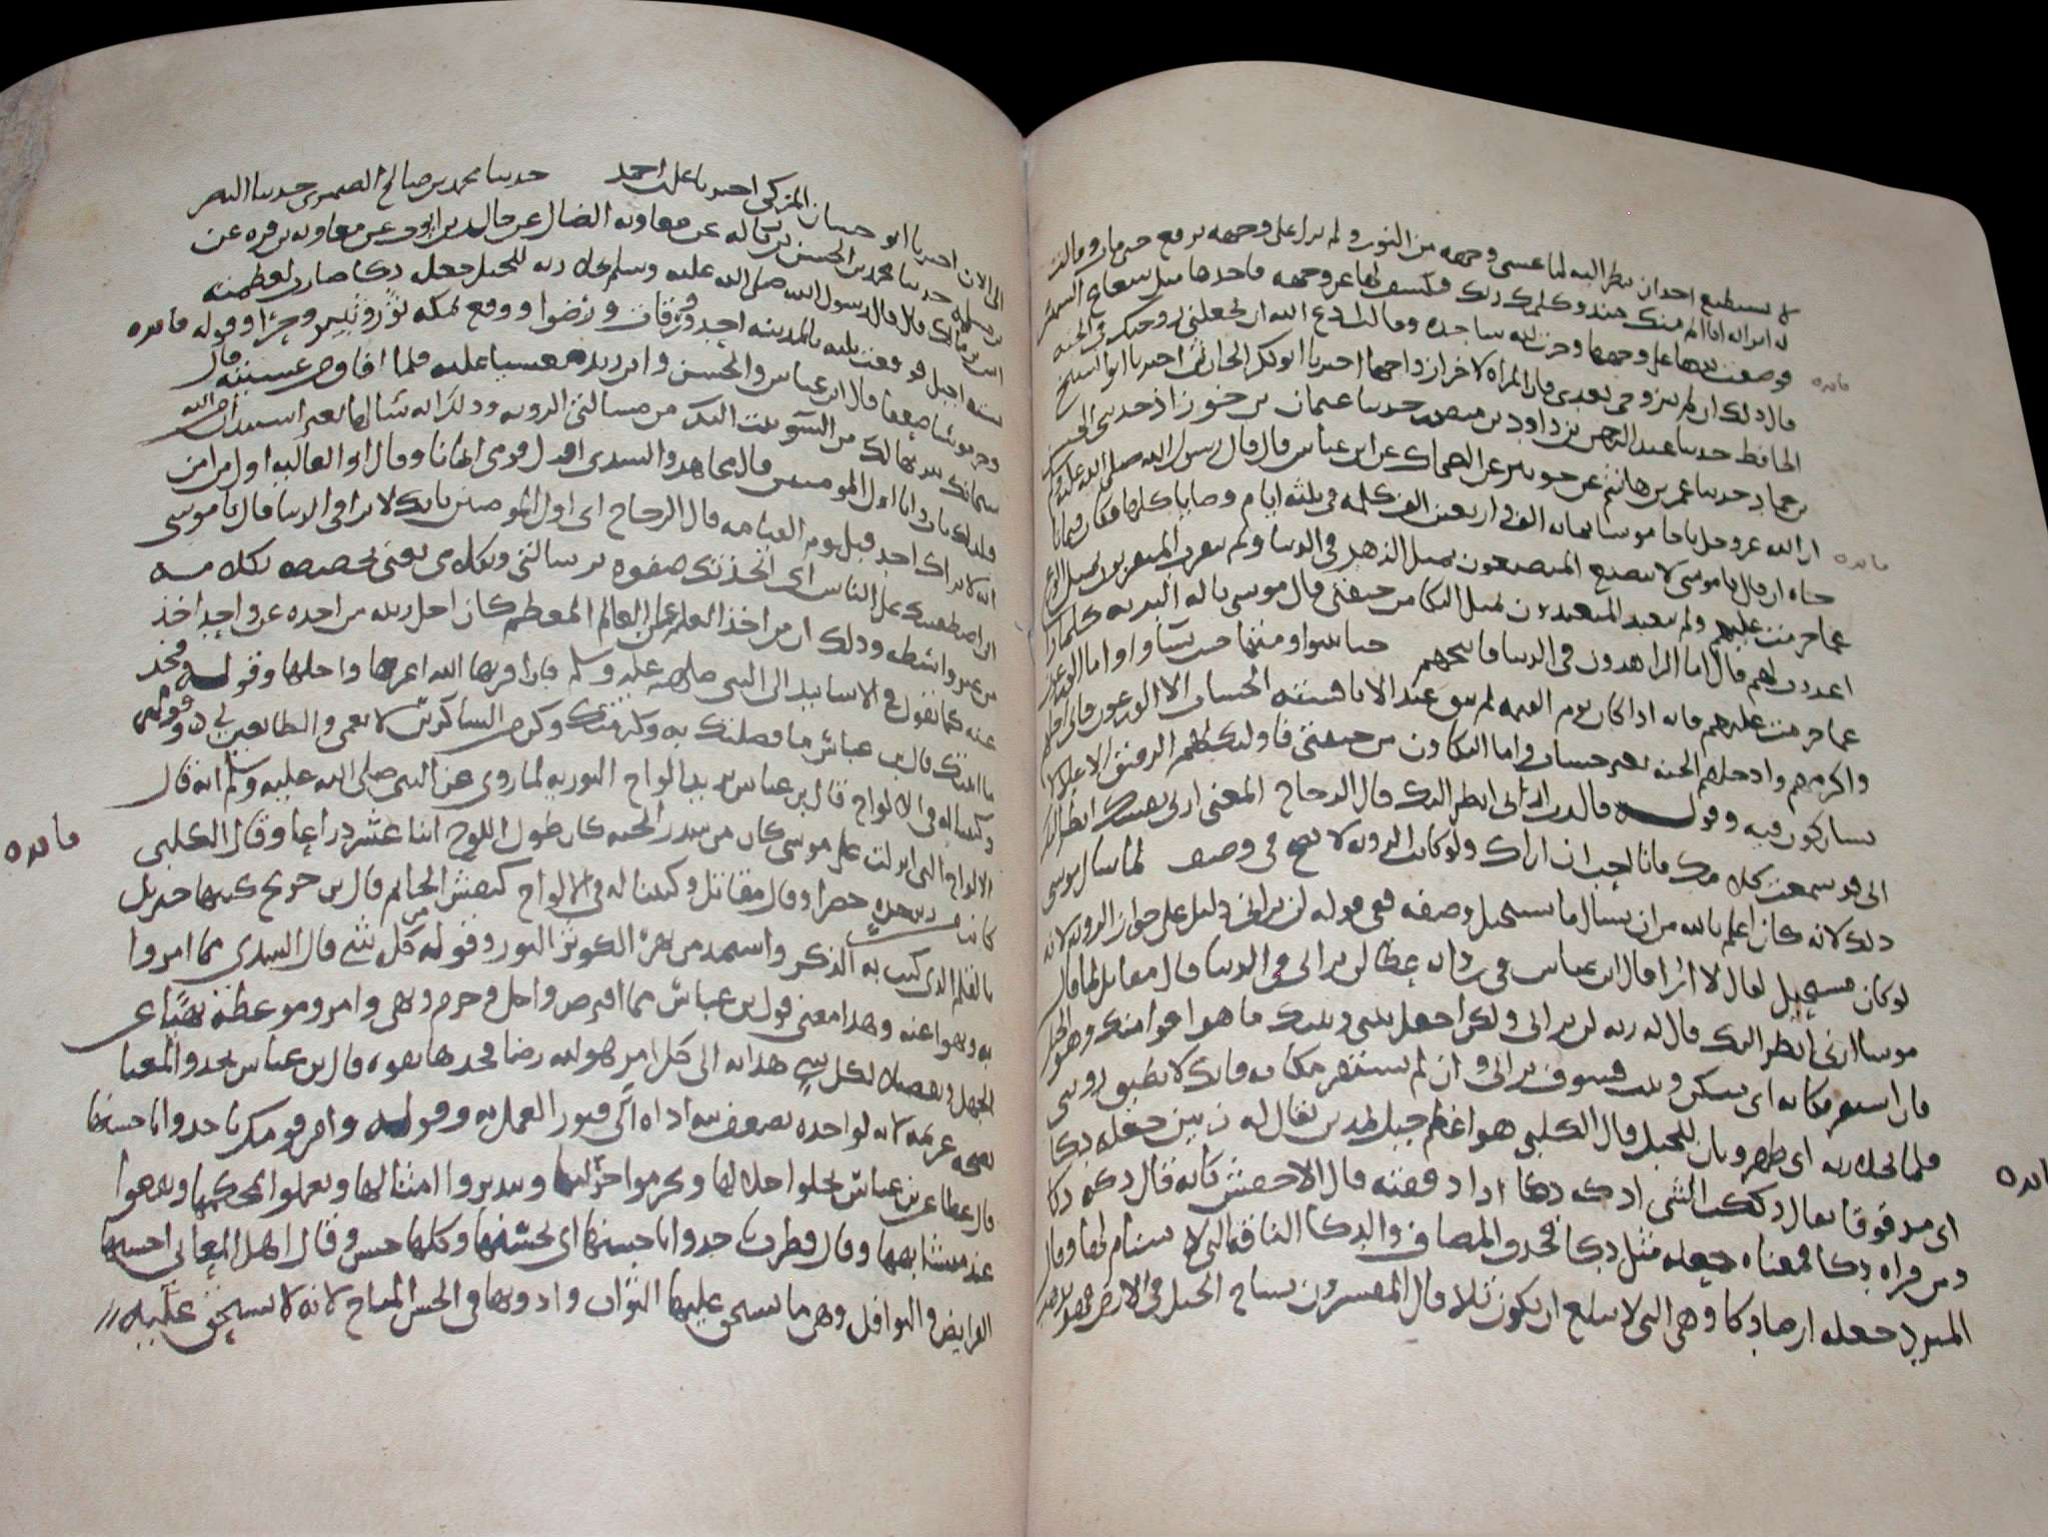 لا يستطيع احد ان ينظر اليه لما غشى وجهه من النور ولم يزل على وجهه برقع حتى مات وقالت
له امراته انا ايم منك منذ كلمك ربك فكشف لها عن وجهه فاخذها مثل شعاع الشمس
فوضعت يدها على وجهها وخرت لله ساجدة وقالت ادع الله ان يجعلني زوجتك في الجنة
قال ذلك ان لم تتزوجي بعدي فان المراه لاخر ازواجها اخبرنا ابو بكر الحارثي اخبرنا ابو الشيخ
الحافظ حدثنا عبد الرحمن بن داود بن منصور حدثنا عثمان بن خرزاذ حدثني الحسن
بن حماد حدثنا عمر بن هاشم عن جويبر عن الضحاك عن ابن عباس قال قال رسول الله صلى الله عليه وسلم
ان الله عز وجل ناجا موسا بمائة الف واربعين الف كلمه في ثلثه ايام وصايا كلها فكان فيما
ناجاه ان قال يا موسى لا يتصنع المتصنعون بمثل الزهد في الدنيا ولم يتقرب المتقربون بمثل الورع
عما حرمت عليهم ولم يتعبد المتعبدون بمثل البكا من خيفتي قال موسى يا اله البريه كلها ماذا
اعددت لهم قال اما الزاهدون في الدنيا فابيحهم حتى يتبوأوا منها حيث شاوا واما الورعون
عما حرمت عليهم فانه اذا كان يوم القيمه لم يبق عبد الا ناقشته الحساب الا الورعون فاني اجلهم
واكرمهم وادخلهم الجنه بغير حساب واما البكاون من خيفتي فاولئك لهم الرفيق الاعلى لا
يشاركون فيه وقوله قال رب ارني انظر اليك قال الزجاج المعنى ارني نفسك انظر اليك
اى قد سمعت كلامك فانا احب ان اراك ولو كانت الرويه لا تصح في وصفه لما سال موسى
ذلك لانه كان اعلم بالله من ان يسال ما يستحيل وصفه ففي قوله لن تراني دليل على جواز الرويه لانه
لو كان مستحيل لقال لا ارا قال ابن عباس في روايه عطا لن تراني في الدنيا قال مقاتل لما قال
موسا ارني انظر اليك قال له ربه لن تراني ولكن اجعل بيني وبينك ما هو اقوا منك وهو الجبل
فان استقر مكانه اى سكن وثبت فسوف تراني وان لم يستقر مكانه فانك لا تطيق رويتى
فلما تجلى ربه اى ظهر وبان للجبل قال الكلبي هو اعظم جبل بمدين يقال له زبير جعله دكا
اى مدقوقا يقال دككت الشى ادكه دكا اذا دققته قال الاخفش كانه قال دكه دكا
ومن قراه دكا فمعناه جعله مثل دكا فحذف المضاف والدكا الناقه التي لا سنام لها وقال
المبرد جعله ارضا دكا وهي التي لا تبلغ ان تكون تلا قال المفسرون ساخ الجبل في الارض فهو يذهب
الى الان اخبرنا ابو حسان المزكي اخبرنا على بن احمد حدثنا محمد بن صالح الصيمرى حدثنا النضر
بن سلمه حدثنا محمد بن الحسن بن زباله عن معاويه الضال عن خالد بن ايوب عن معاويه بن قره عن
انس بن مالك قال قال رسول الله صلى الله عليه وسلم تجلا ربه للجبل جعله دكا صار لعظمته
سته اجبل فوقعت ثلثه بالمدينه احد وورقان ورضوا ووقع بمكه ثور وثبير وحرا وقوله
وخر موسا صعقا قال ابن عباس والحسن وابن زيد مغشيا عليه فلما افاق من غشيته قال
سبحانك تنزيها لك من السؤ تبت اليك من مسالتي الرويه وذلك انه سالها بغير استيذان من الله
فلذلك تاب وانا اول المومنين قال مجاهد والسدى اول قومى ايمانا وقال ابو العاليه اول من امن
انه لا يراك احد قبل يوم القيامه قال الزجاج اى اول المومنين بانك لا ترا في الدنيا قال يا موسى
انى اصطفيتك على الناس اى اتخذتك صفوه برسالتى وبكلامى يعنى تخصيصه بكلامه
من غير واسطه وذلك ان من اخذ العلم عن العالم المعظم كان اجل رتبه من اخذه عن واحد اخذ
عنه كما نقول في الاسانيد الى النبي صلى الله عليه وسلم فان اقربها الله اعزها واجلها وقوله فخذ
ما اتيتك قال بن عباس ما فضلتك به وكرمتك وكن من الشاكرين لانعمى والطائعين لي وقوله
وكتبنا له في الالواح قال بن عباس يريد الواح التوريه لما روى عن النبي صلى الله عليه وسلم انه قال
الالواح التى انزلت على موسى كان من سدر الجنه كان طول اللوح اثنا عشر ذراعا وقال الكلبي
كانت من زبرجده خضرا وقال مقاتل وكتبنا له في الالواح كنقش الخاتم قال بن جريج كتبها جبريل
بالقلم الذى كتب به الذكر واستمد من نهر الكوثر النور وقوله من كل شى قال السدى مما امروا
به ونهوا عنه وهذا معنى قول بن عباس مما افترض واحل وحرم ونهى وامر وموعظه نهيا عن
الجهل وتفصيلا لكل شى هدايه الى كل امر هو لله رضا فخذها بقوه قال بن عباس بجد والمعنا
بصحه عزيمه لانه لو اخذه بضعف نيه اداه الى فتور العمل به وقوله وامر قومك ياخذوا باحسنها
قال عطا عن بن عباس يحلوا حلالها ويحرموا حرامها ويتدبروا امثالها ويعملوا بمحكمها ويقفوا
عند متشابهها وقال قطرب ياخذوا باحسنها اى بحسنها وكلها حسن وقال اهل المعاني احسنها
الفرايض والنوافل وهى ما يستحق عليها الثواب وادونها في الحسن المباح لانه لا يستحق عليه